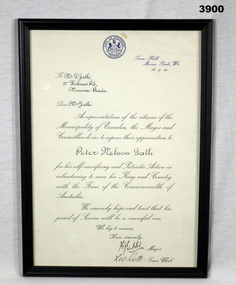 3900
Town Hall
To Mr D. Gath,
Dear Mr Gath:
As representatives of the citizens of the
Municipality of Essendon, the Mayor and
Councillors desire to express their appreciation to
Peter Nelson Gath
for his self-sacrificing and Patriotic Action in
volunteering to serve his King and Country
with the Forces of the Commonwealth of
Australia.
We sincerely hope and trust that his
period of Service will be a successful one.
We beg to remain,
Yours sincerely,
Mayor
Town Clerk